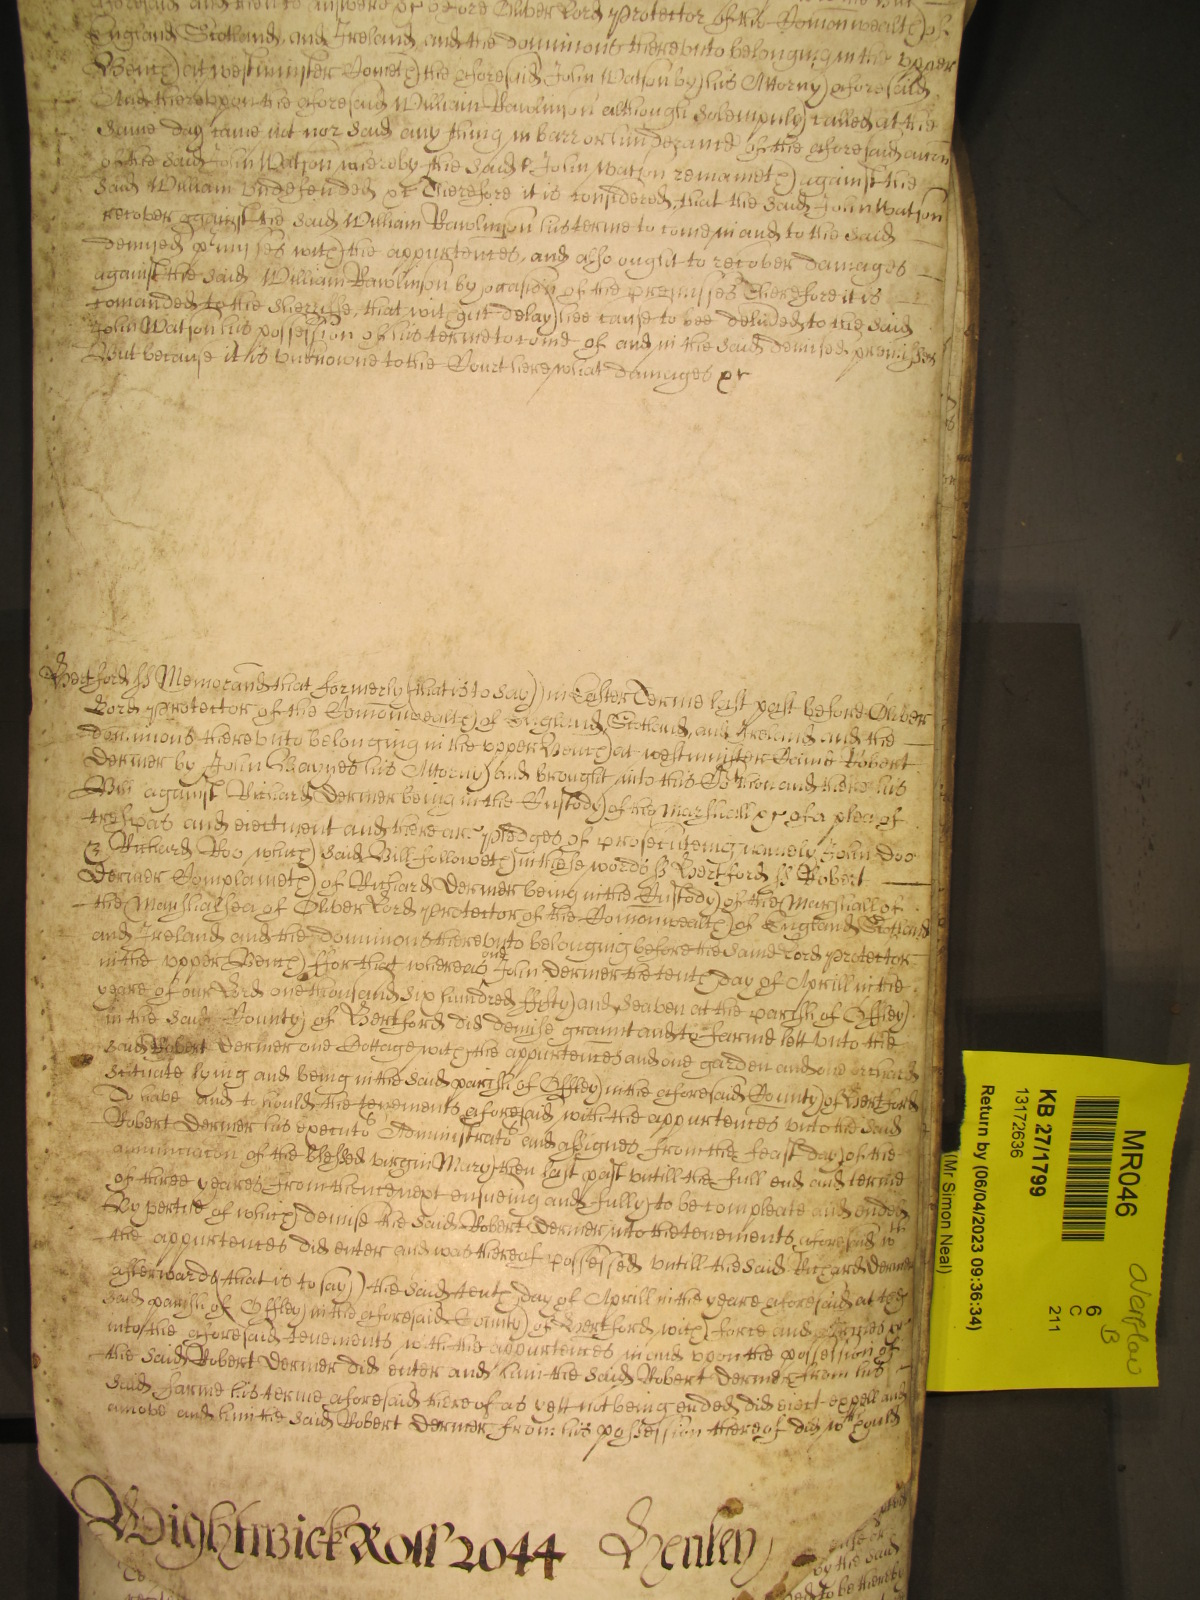 aforesaid and then to answere &c before Oliver Lord Protector of the Comonwealth of
England Scotland and Ireland and the dominions thereunto belonging in the upper
Bench at westminster Cometh the aforesaid John Watson by his Attorny aforesaid
And thereupon the aforesaid William Rawlinson although solempnly called at the
same day came not nor said any thing in barr or of the aforesaid accon
of the said John Watson whereby the said John Watson remaineth against the
said William undefended &c Therefore it is considered, that the said John Watson
recover against the said William Rawlinson his terme to come in and to the said
demised p'misses with the appurtences, and also ought to recover damages
against the said William Rawlinson by occasion of the premisses Therefore it is
comanded to the Sheriffe, that without delay hee cause to bee delivred to the said
John Watson his possession of his terme to come of and in the said demised premisses
But because it is unknowne to the Court here, what damages &c
Hertford ss Memorand that formerly (that is to say) in Easter Terme last past before Oliver
Lord Protector of the Comonwealth of England, Scotland, and Ireland and the
dominions thereunto belonging in the upper Bench at westminster Came Robert
Dermer by John Haynes his Attorny and brought into this Co't then and there his
Bill against Richard Dermer being in the Custody of the Marshall &c of a plea of
trespas and eiectment and there are pledges of prosecuteing namely John Doo
& Richard Roo which said Bill followeth in these words ss Hertford ss Robert
Dermer Complaineth of Richard Dermer being in the Custody of the Marshall of
the Marshalsea of Oliver Lord Protector of the Comonwealth of England Scotland
and Ireland and the dominions thereunto belonging before the same Lord Protector
in the upper Bench ffor that whereas one John Dermer the tenth day of Aprill in the
yeare of our Lord one thousand six hundred fifty and seaven at the parish of Offley
in the said County of Hertford did demise graunt and to farme lett unto the
said Robert Dermer one Cottage with the appurtences and one garden and one orchard
scituate lying and being in the said parish of Offley in the aforesaid County of Hertford
To have and to hould the tenements aforesaid with the appurtences unto the said
Robert Dermer his executo's Administrato's and assignes from the feast day of the
annunciacon of the blessed virgin Mary then last past untill the full end and terme
of three yeares from thence next ensueing and fully to be compleate and ended
By vertue of which demise the said Robert Dermer into the tenements aforesaid wth
the appurtences did enter and was thereof possessed untill the said Richard Dermer
afterwards (that is to say) the said tenth day of Aprill in the yeare aforesaid at the
said parish of Offley in the aforesaid County of Hertford with force and Armes &c
into the aforesaid tenements with the appurtences in and upon the possession of
the said Robert Dermer did enter and him the said Robert Dermer from his
said farme his terme aforesaid thereof as yett not being ended, did eiect expell and
amove and him the said Robert Dermer from his possession thereof did wthhould
Wightwick Roll 2044 Henley
by the said
to be thereby
MR046
KB 27/1799
13172636
6
C
211
B
Return by (06/04/2023 09:36:34)
(Mr Simon Neal)